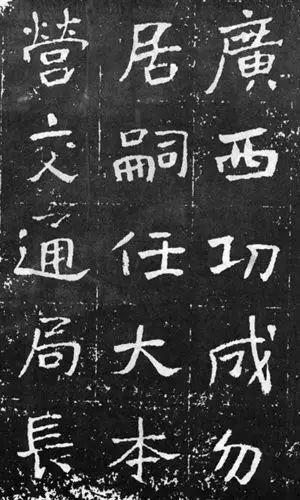 廣西功成勿
居嗣任大本
營交通局長